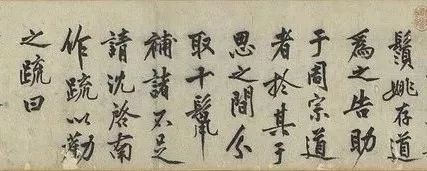 鬚姚存道
為之告助
于周宗道
者於其于
思之間分
取十鬣
補諸不足
請沈啓南
作疏以勸
之疏曰